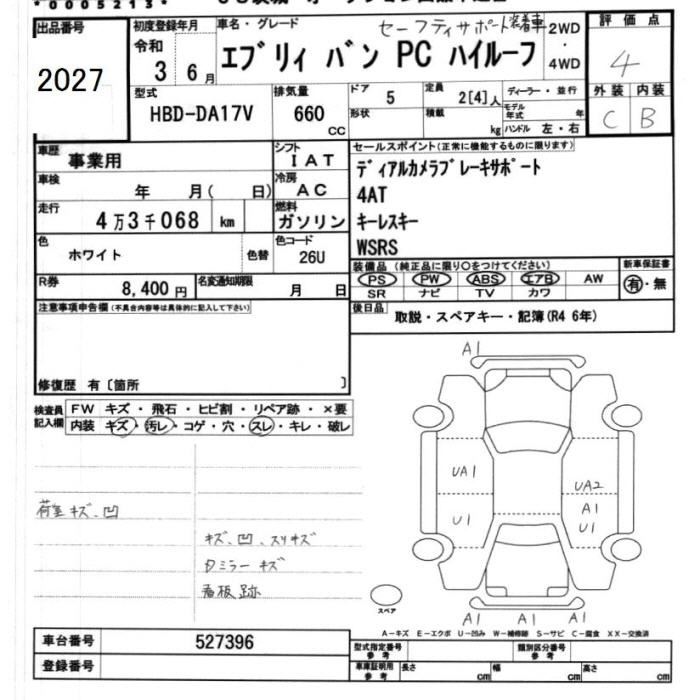 *0005213*
出品番号
2027
初度登録年月
令和
3 6月
車名・グレード
セーフティサポート装着車
エブリィ バン PC ハイルーフ
2WD
・
4WD
評価点
4
外装 内装
C B
型式
HBD-DA17V
排気量
660
CC
ドア
5
形状
定員
2[4]人
積載
kg
ディーラー・並行
モデル年式 年
ハンドル 左・右
車歴
事業用
シフト
IAT
車検
年 月( 日)
冷房
AC
走行
4万3千068 km
燃料
ガソリン
色
ホワイト
色替
色コード
26U
R券
8,400円
名変通知期限
月 日
セールスポイント(正常に機能するものに限ります)
ディアルカメラブレーキサポート
4AT
キーレスキー
WSRS
装備品(純正品に限り○をつけてください)
PS PW ABS エアB AW
SR ナビ TV カワ
新車保証書
有・無
後日品
取説・スペアキー・記簿(R4 6年)
注意事項申告欄(不具合内容等は具体的に記入して下さい)
修復歴 有〔箇所 〕
検査員記入欄
FW キズ・飛石・ヒビ割・リペア跡・×要
内装 キズ・汚レ・コゲ・穴・スレ・キレ・破レ
荷室キズ、凹
キズ、凹、スリキズ
ミラーキズ
看板跡
A1
UA1
UA2
A1
U1
U1
A1 A1 A1
スペア
A-キズ E-エクボ U-凹み W-補修跡 S-サビ C-腐食 XX-交換済
車台番号
527396
登録番号
型式指定番号
参考
類別区分番号
参考
車庫証明用
参考
長さ cm
幅 cm
高さ cm